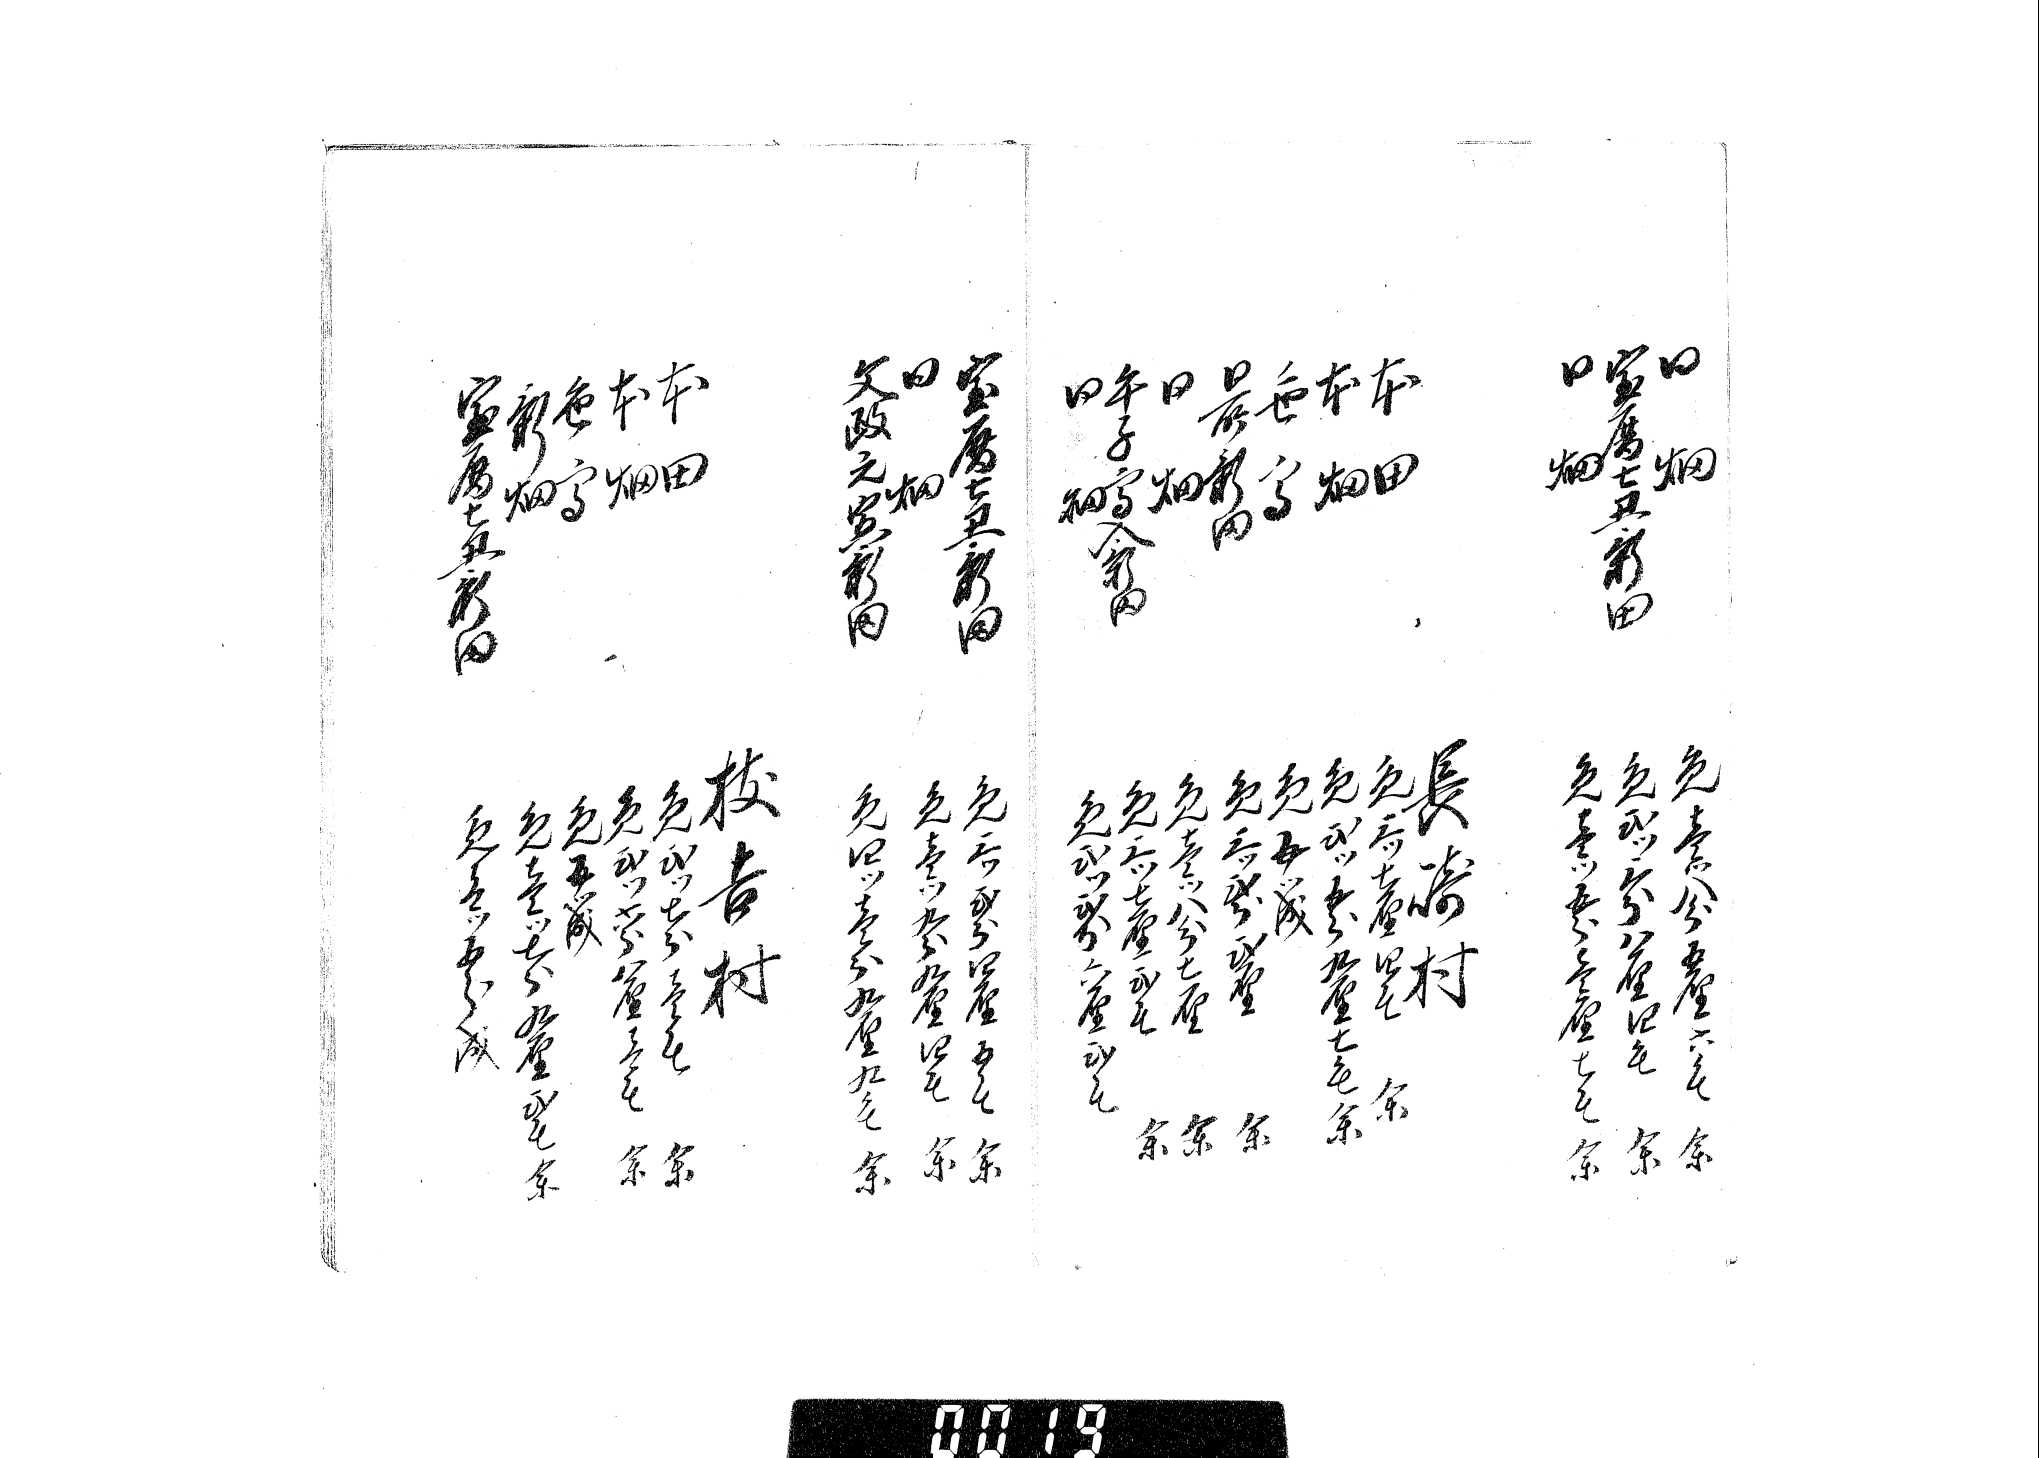 同　畑　免壱ツ八分五厘六毛　余
宝暦七丑新田　免弐ツ三分八厘四毛　余
同　畑　免壱ツ五分壱厘七毛　余
長崎村
本田　免三ツ七厘四毛　余
本畑　免弐ツ五分九厘七毛　余
色高　免五ツ成
同所新田　免三ツ弐分弐厘　余
同　畑　免壱ツ八分七厘　余
午子高入新田　免三ツ七厘弐毛　余
同　畑　免弐ツ弐分六厘弐毛
宝暦七丑新田　免三ツ弐分四厘五毛　余
同　畑　免壱ツ九分九厘四毛　余
文政元寅新田　免四ツ壱分九厘九毛　余
枝吉村
本田　免弐ツ七分壱毛　余
本畑　免弐ツ　分八厘壱毛　余
色高　免五ツ成
新畑　免壱ツ七分九厘弐毛　余
宝暦七丑新田　免壱ツ五分成
0019